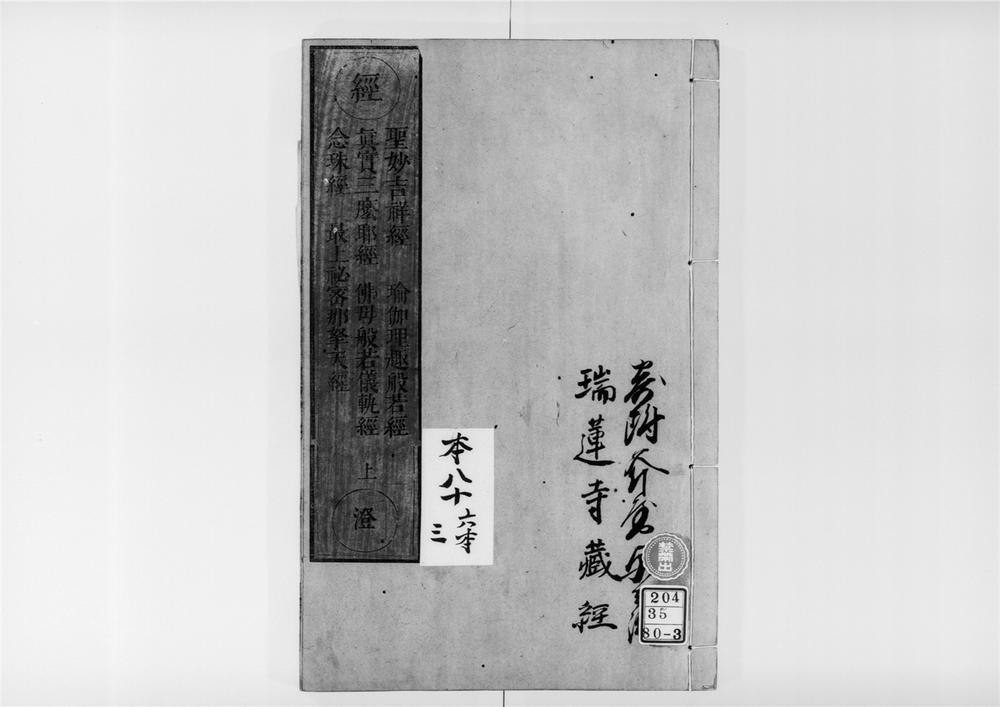 經
聖妙吉祥經 瑜伽理趣般若經
眞實三麼耶經 佛母般若儀軌經 上
念珠經 最上祕密那拏天經
澄
本八十六本
三
寄附
瑞蓮寺藏經
禁帶出
204
35
80-3